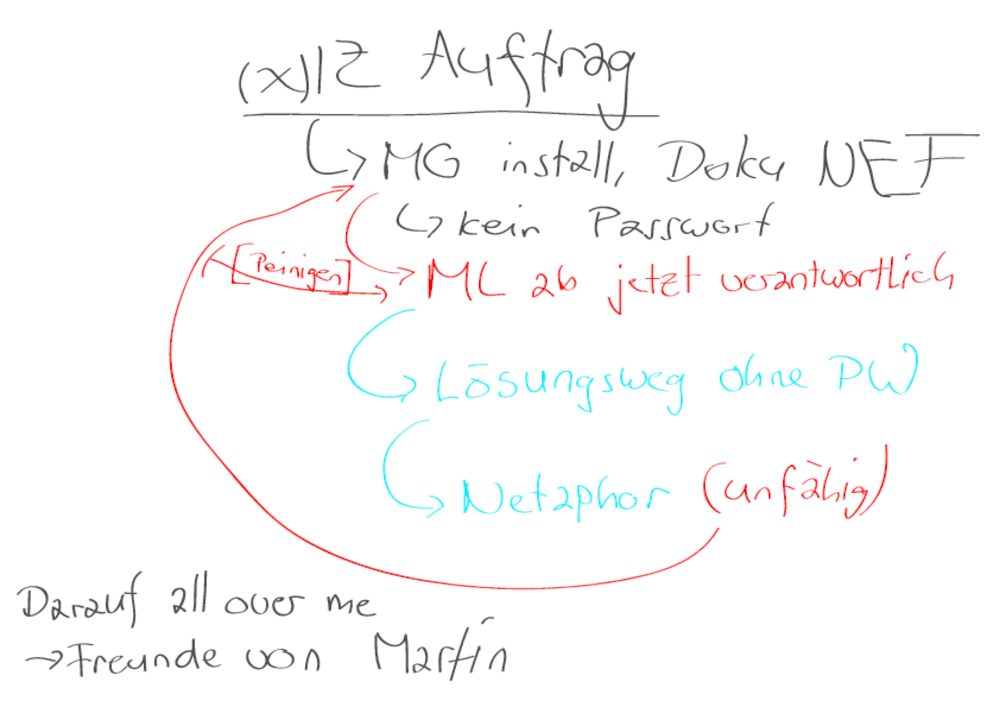 (x)IZ Auftrag
↳ MG install, Doku NEF
↳ kein Passwort
[Peinigen] → ML ab jetzt verantwortlich
↳ Lösungsweg ohne PW
↳ Netaphor (unfähig)
Darauf all over me
→ Freunde von Martin